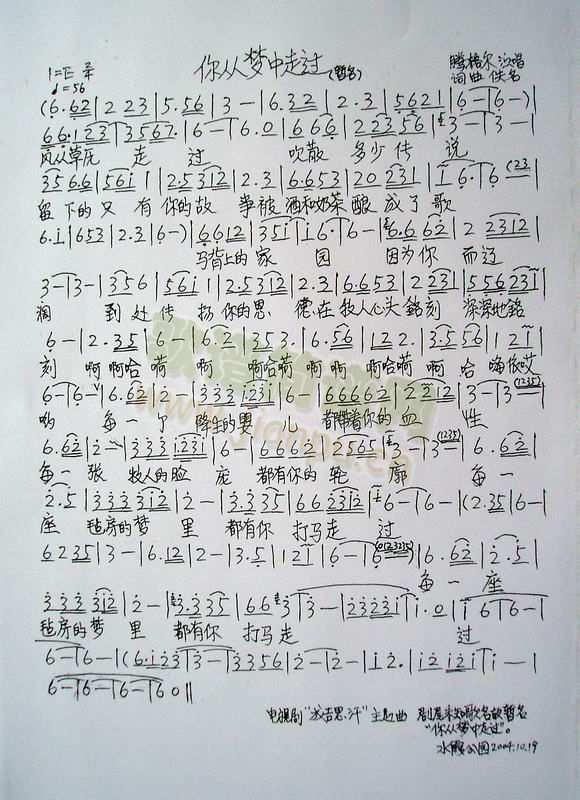 你从梦中走过 (暂名)
1=E 2/4
♩=56
腾格尔 演唱
词曲 佚名
(6.62|2 23|5.56|3 -|6.32|2.3|5621|6 -|6 -)|
66123|3567.|6 -|6.0|666|22356|3 -|3 -|
风从草尾 走 过 吹散 多少传 说
3566|561 1|2.5312|2.3|6.653|20 231|1 6.|6
留下的只 有你的故 事被酒和奶茶 酿 成了歌
6.1|653|2.3|6 -)|6612|351|16.|6 -|6.662|2 2312|
马背上的家 园 因为你 而过
3 -|3 -|356|561 1|2.5312|2.3|6.653|2231|556231|
润 到处传 扬你的恩 德在牧人心头铭刻 深深地铭
6 -|2.35|6 -|6.62|353.|6.56|122.|3.556|121|
刻 啊啊哈嗬 啊 啊哈嗬啊啊 啊哈嗬 啊哈 嗨侬哎
6 -|6 -|6.62|2 -|3331231|6 -|66662|2212|3 -|3
哟 每一个 降生的男 儿 都带着你的血 性
6.62|2 -|3331231|6 -|6662|2565|3 -|3|6.62|
每一张 牧人的脸 庞 都有你的轮 廓 每一
2.5|3333312|2 -|3.335|662312|6 -|6 -|(2.35|6 -|
座 毡房的梦 里 都有你 打马走 过
6235|3 -|6.12|2 -|3.5|121|6 -|6|6.62|2.5|
每一座
333 312|2 -|3.335|663|3 -|23231|1.0|1 6|6 -|
毡房的梦 里 都有你 打马走 过
6 -|6 -|(6.123|3 -|3356|2 -|2 -|12.|12 121|1 -|
6 -|6 -|6 -|60‖
电视剧"成吉思汗"主题曲 剧尾未知歌名故暂名
"你从梦中走过"。
水郡公园2004.10.19